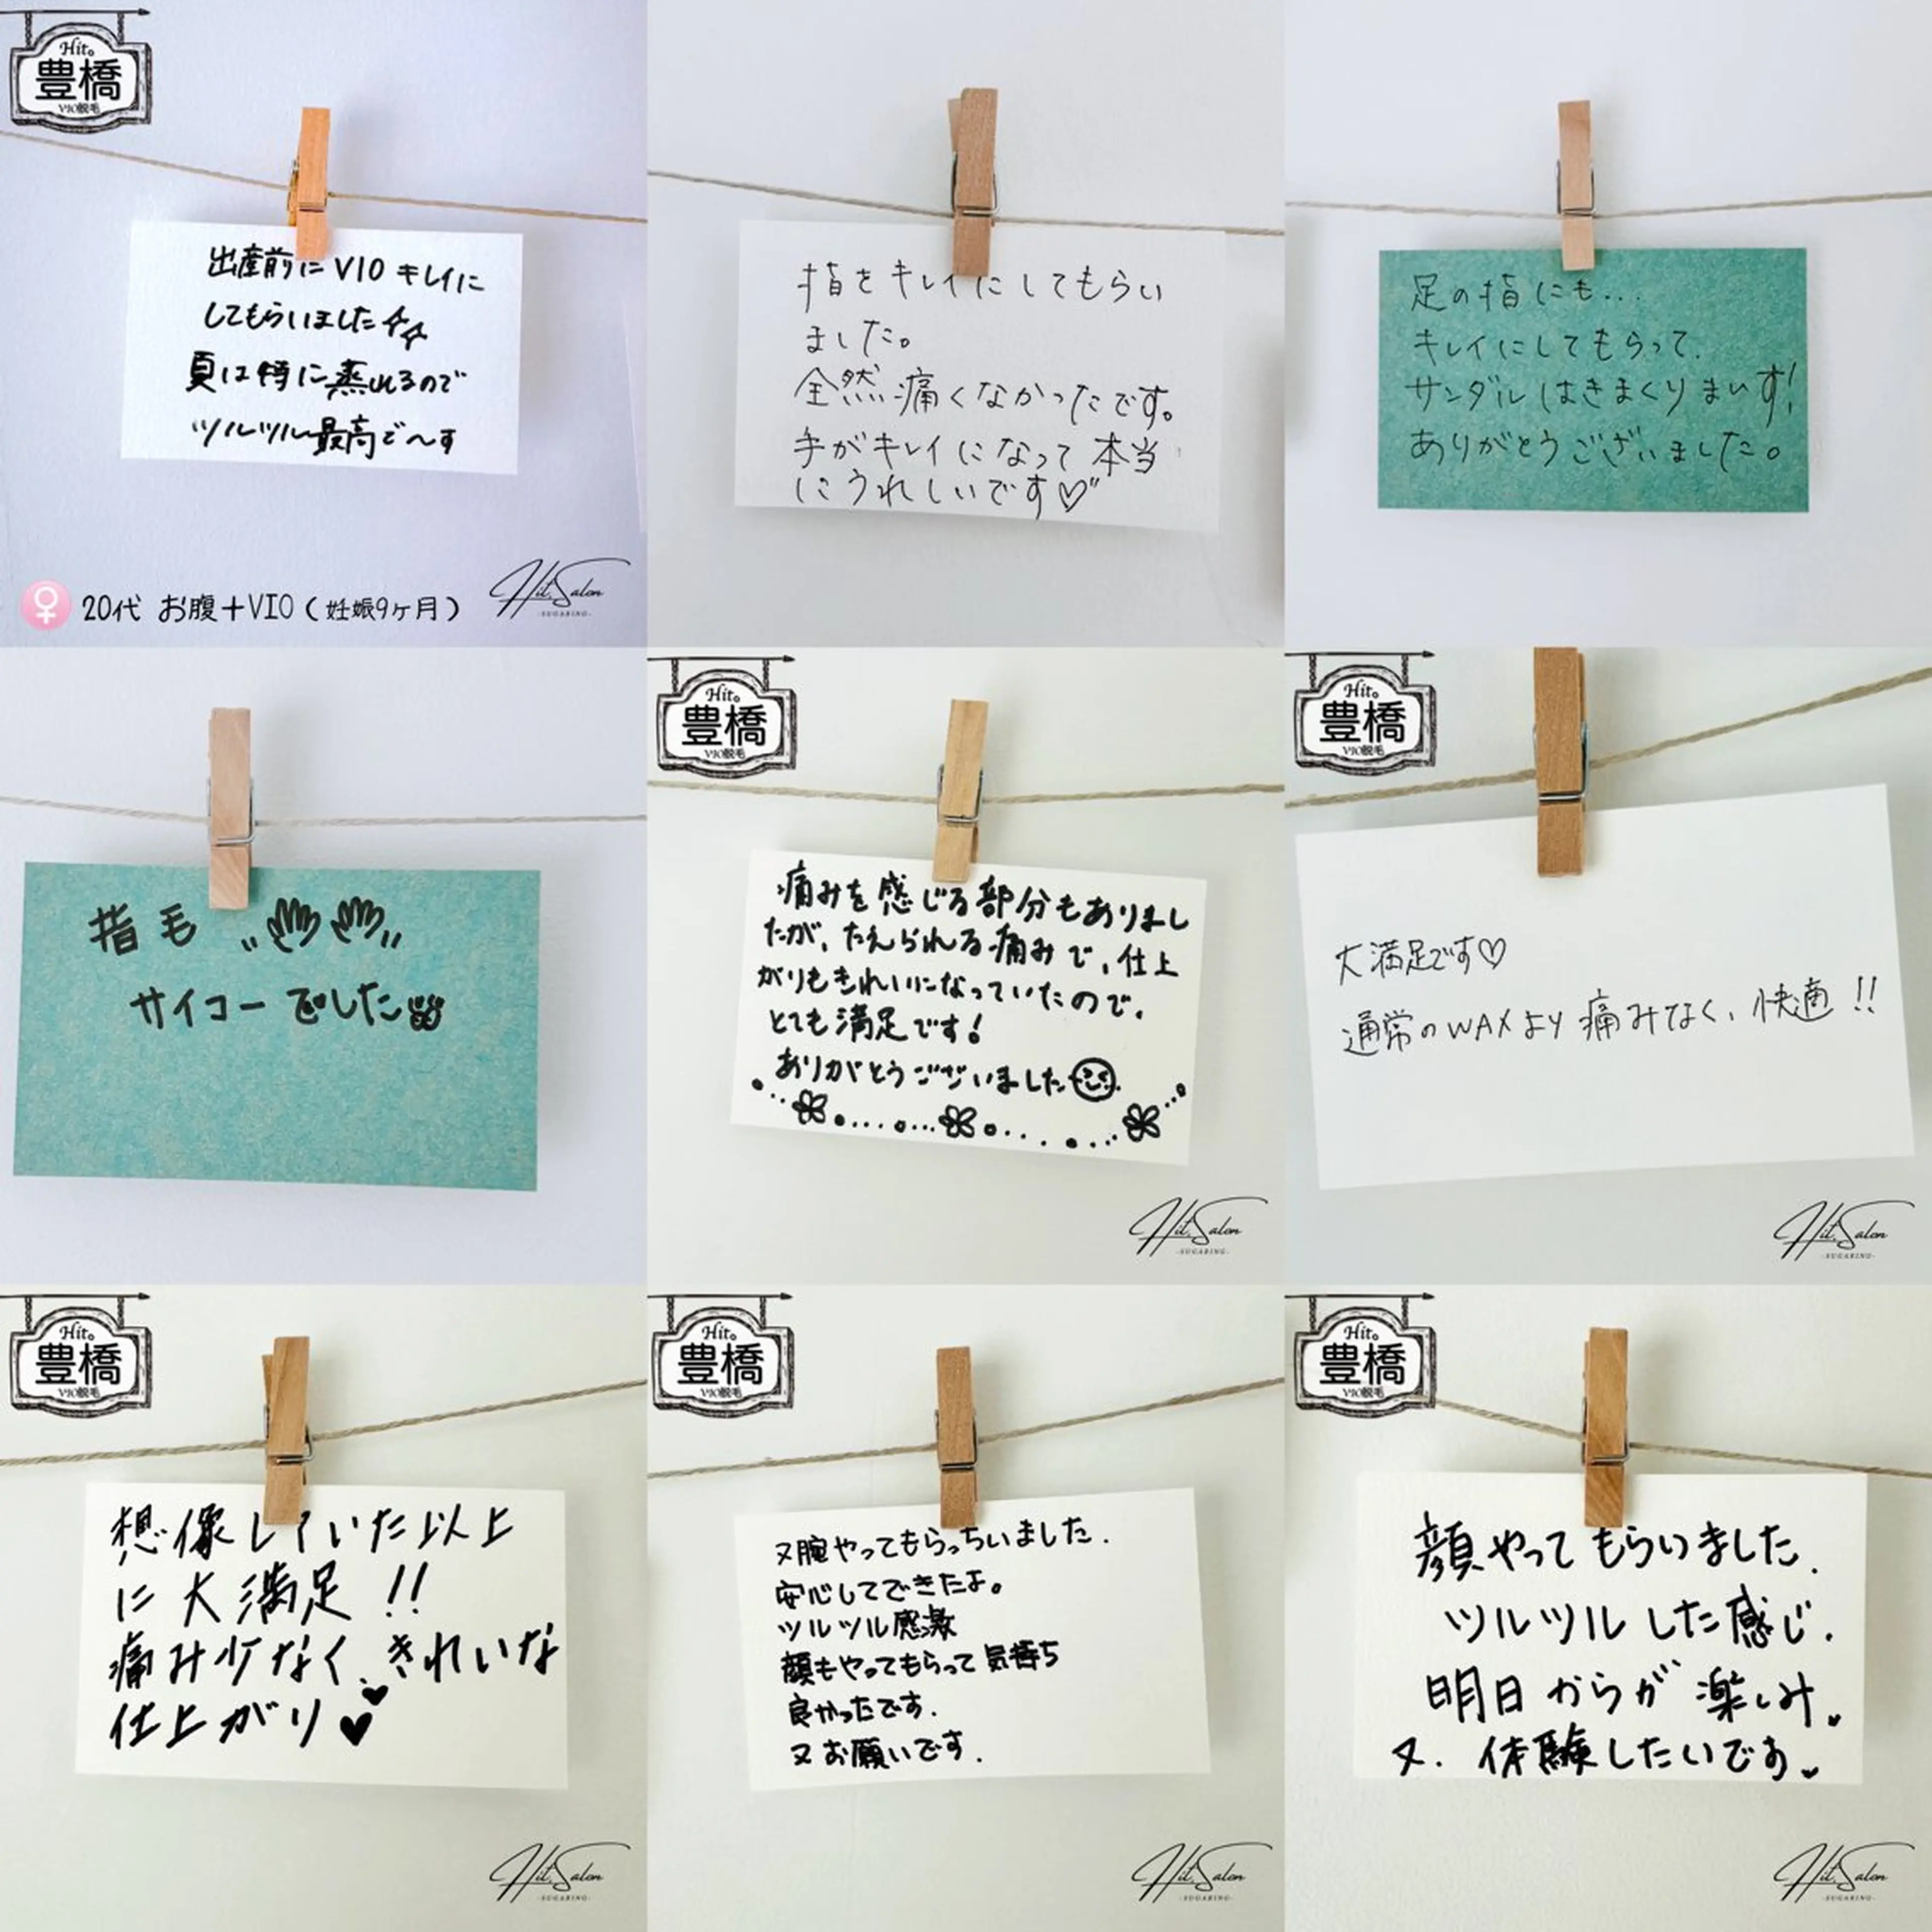 Hit。
豊橋
VIO脱毛
出産前に VIO キレイに
してもらいました
夏は特に蒸れるので
ツルツル最高で〜す
20代 お腹+VIO(妊娠9ヶ月)
Hit. Salon
-SUGARING-
指をキレイにしてもらい
ました。
全然痛くなかったです。
手がキレイになって本当
にうれしいです♡"
足の指にも...
キレイにしてもらって.
サンダルはきまくりまいす!
ありがとうございました。
指毛
サイコーでした
Hit。
豊橋
VIO脱毛
痛みを感じる部分もありまし
たが、たえられる痛みで、仕上
がりもきれいになっていたので、
とても満足です!
ありがとうございました
Hit. Salon
-SUGARING-
Hit。
豊橋
VIO脱毛
大満足です♡
通常のWAXより痛みなく、快適!!
Hit. Salon
-SUGARING-
Hit。
豊橋
VIO脱毛
想像していた以上
に大満足!!
痛み少なく、きれいな
仕上がり♥
Hit. Salon
-SUGARING-
Hit。
豊橋
VIO脱毛
又腕やってもらっちいました.
安心してできたよ。
ツルツル感激
顔もやってもらって気持ち
良かったです.
又お願いです.
Hit. Salon
-SUGARING-
Hit。
豊橋
VIO脱毛
顔やってもらいました.
ツルツルした感じ.
明日からが楽しみ♥
又. 体験したいです♥
Hit. Salon
-SUGARING-